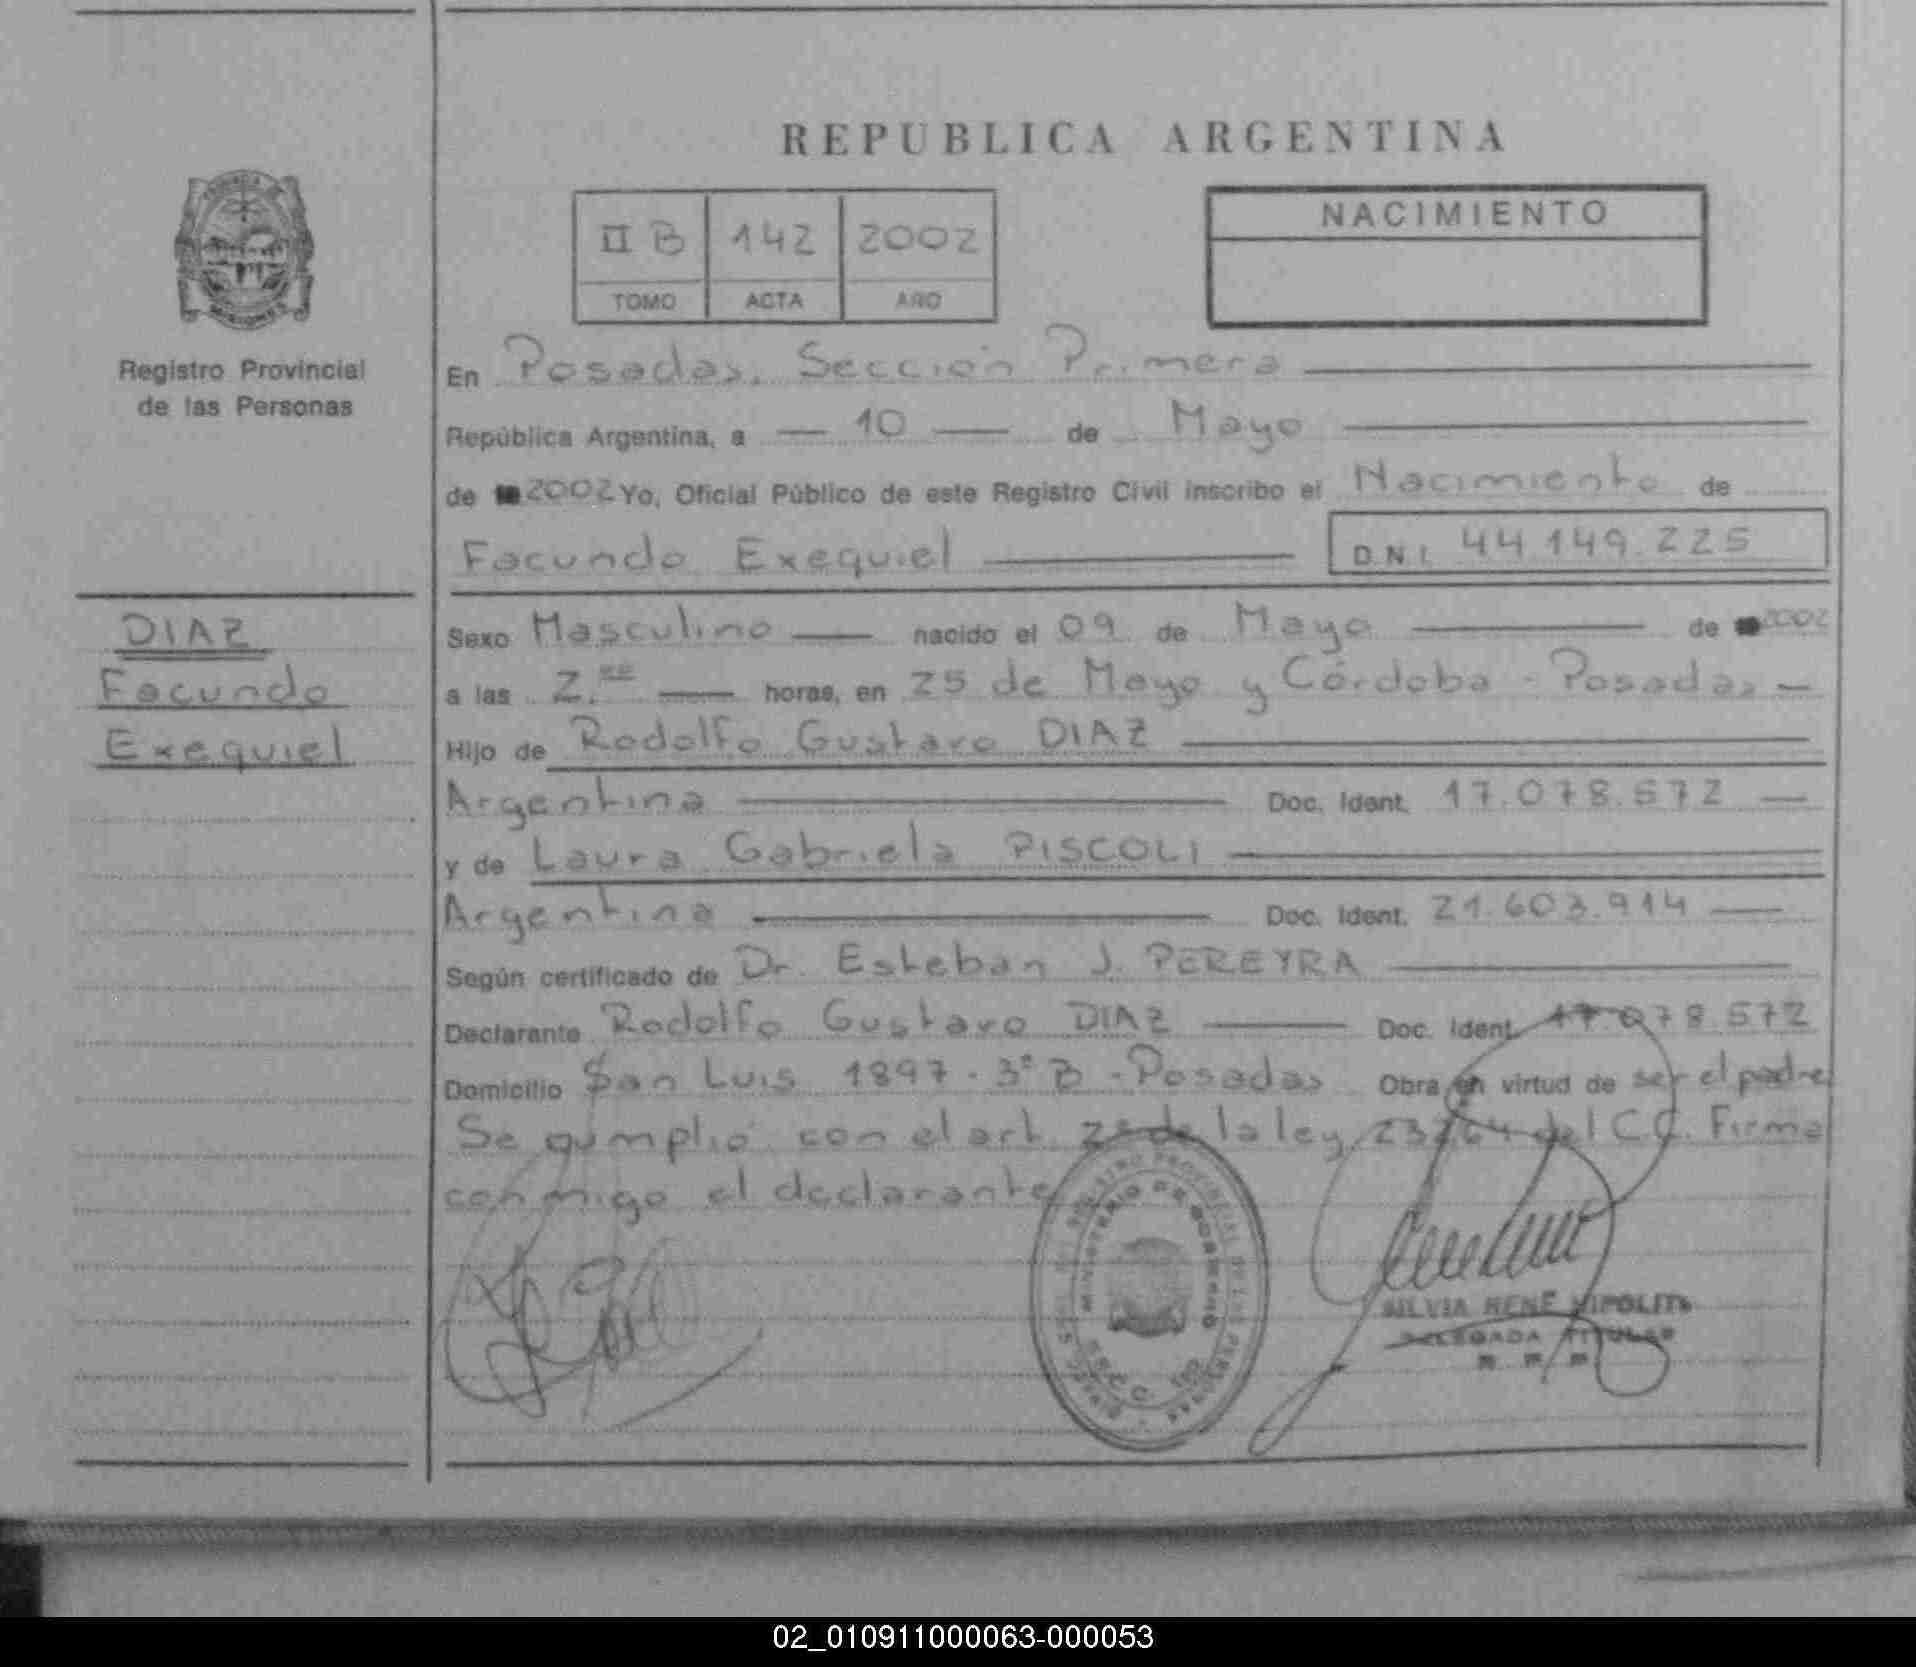 REPUBLICA ARGENTINA
II B 142 2002
TOMO ACTA AÑO
NACIMIENTO
Registro Provincial
de las Personas
En Posadas, Sección Primera
República Argentina, a 10 de Mayo
de 2002 Yo, Oficial Público de este Registro Civil inscribo el Nacimiento de
Facundo Exequiel D.N.I. 44.149.225
DIAZ
Facundo
Exequiel
Sexo Masculino nacido el 09 de Mayo de 2002
a las 2.00 horas, en 25 de Mayo y Córdoba - Posadas -
Hijo de Rodolfo Gustavo DIAZ
Argentina Doc. Ident. 17.078.572
y de Laura Gabriela PISCOLI
Argentina Doc. Ident. 21.603.914
Según certificado de Dr. Esteban J. PEREYRA
Declarante Rodolfo Gustavo DIAZ Doc. Ident. 17.078.572
Domicilio San Luis 1897 - 3° B - Posadas Obra en virtud de ser el padre
Se cumplió con el art. de la ley 23264 del C.C. Firma
conmigo el declarante
MINISTERIO DE GOBIERNO
SILVIA RENÉ HIPOLITO
DELEGADA TITULAR
02_010911000063-000053